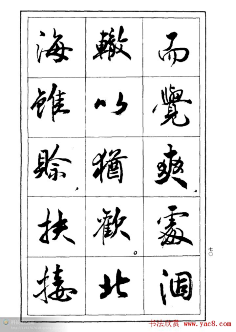 而覺爽處涸
轍以猶歡北
海雖賒扶接
七〇
书法欣赏
www.yac8.com